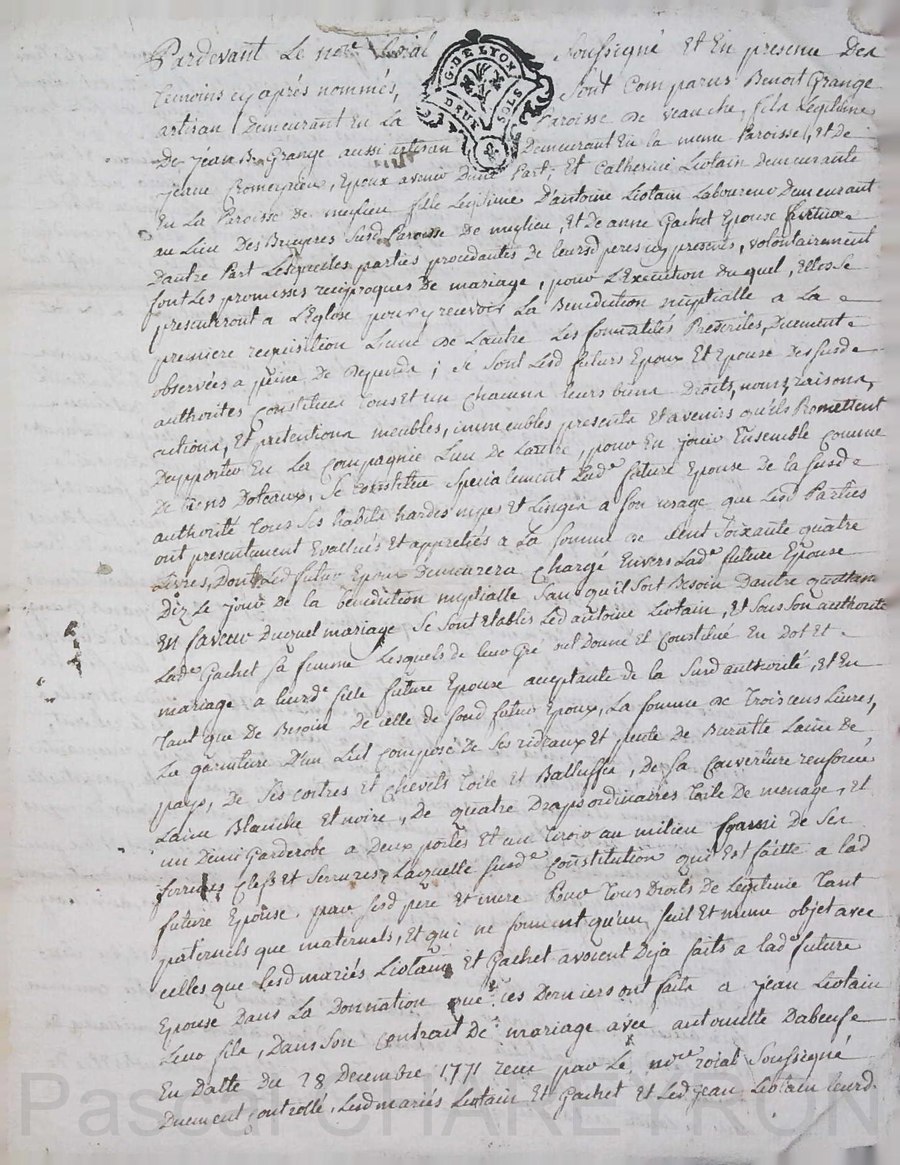 Pardevant Le nore Roial Soussigné Et En presence Des
G. DE LYON
DEUX SOLS
temoins cy aprés nommés, Sont Comparus Benoit Grange
artisan Demeurant En La Paroisse de veauche, fils Legitime
De jean Bte Grange aussi artisan Demeurant En la meme Paroisse, et de
jeane Romeyrieu, Epoux avenir D'une Part, Et Catherine Liotain demeurante
En La Paroisse de meylieu fille Legitime D'antoine Liotain Laboureur Demeurant
au Lieu Des Bruyeres Susd Paroisse De mylieu, Et De anne Gachet Epouse future
Dautre Part Lesquelles parties procedantes de leursd peres icy presents, volontairement
font Les promesses reciproques De mariage, pour L'Execution du quel, Elles Se
presenteront a L'Eglise pour y recevoir La Benediction nuptialle a La
premiere requisition L'une De Lautre Les formalités Prescrites, Duement
observées a peine De Depends ; Se Sont Lesd futurs Epoux Et Epouse Des susd
authorités Constitués tous et un chacuns leurs biens Droits, noms, raisons,
actions, Et pretentions meubles, immeubles presents Et avenirs qu'ils Promettent
Dapporter En La Compagnie L'un De Lautre, pour En jouir Ensemble Comme
De Biens Doteaux, Se Constitue Specialement Lade future Epouse De la susd
authorité tous Ses habits hardes nipes et Linges a Son usage que Lesd Parties
ont presentement Evallués Et appretiés a La Somme de Cent Soixante quatre
Livres, Dont Led futur Epoux Demeurera Chargé Envers Lade future Epouse
Diz Le jour De la benediction nuptialle San qu'il Soit Besoin D'autre quittance
En faveur Duquel mariage Se Sont Etablis Led antoine Liotain, Et Sous Son authorité
Lade Gachet Sa femme Lesquels de leur Gré ont Donné Et Constitué En Dot Et
mariage a leurde fille future Epouse acceptante de La Susd authorité, Et En
tant que De Besoin De celle de Sond futur Epoux, La Somme De Trois cens Livres,
La garniture D'un Lit Composé De Ses rideaux Et pente de Buratte Laine De
pays, De Ses coitres Et Chevets toile Et Balluffe, De Sa Couverture renforcée
Laine Blanche Et noire, De quatre Draps ordinaires toile De menage, Et
un Demi Garderobe a Deux portes Et un tiroir au milieu Garni De Ses
ferrures Clefs Et Serrures, Laquelle Susde Constitution qui Est faitte a lad
future Epouse par Sesd pere Et mere Pour Tous Droits De Legitime Tant
paternels que maternels, Et qui ne forment qu'un Seul Et meme objet avec
celles que Lesd mariés Liotain Et Gachet avoient Deja faits a lade future
Epouse Dans La Donnation que ces Derniers ont faite a jean Liotain
Leur fils, Dans Son Contrait De mariage avec antoinette Dabeuf
En Datte Du 28 Decembre 1771 recu par Le nore roial Soussigné
Duement Controllé, Lesd mariés Liotain Et Gachet Et Led jean Liotain leurd
Pascal CHAREYRON